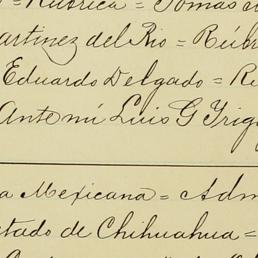 = Rubrica = Tomas
artinez del Rio = Rúb
Eduardo Delgado = R
Ante mi Luis G Trig
a Mexicana = Adm
tado de Chihuahua =